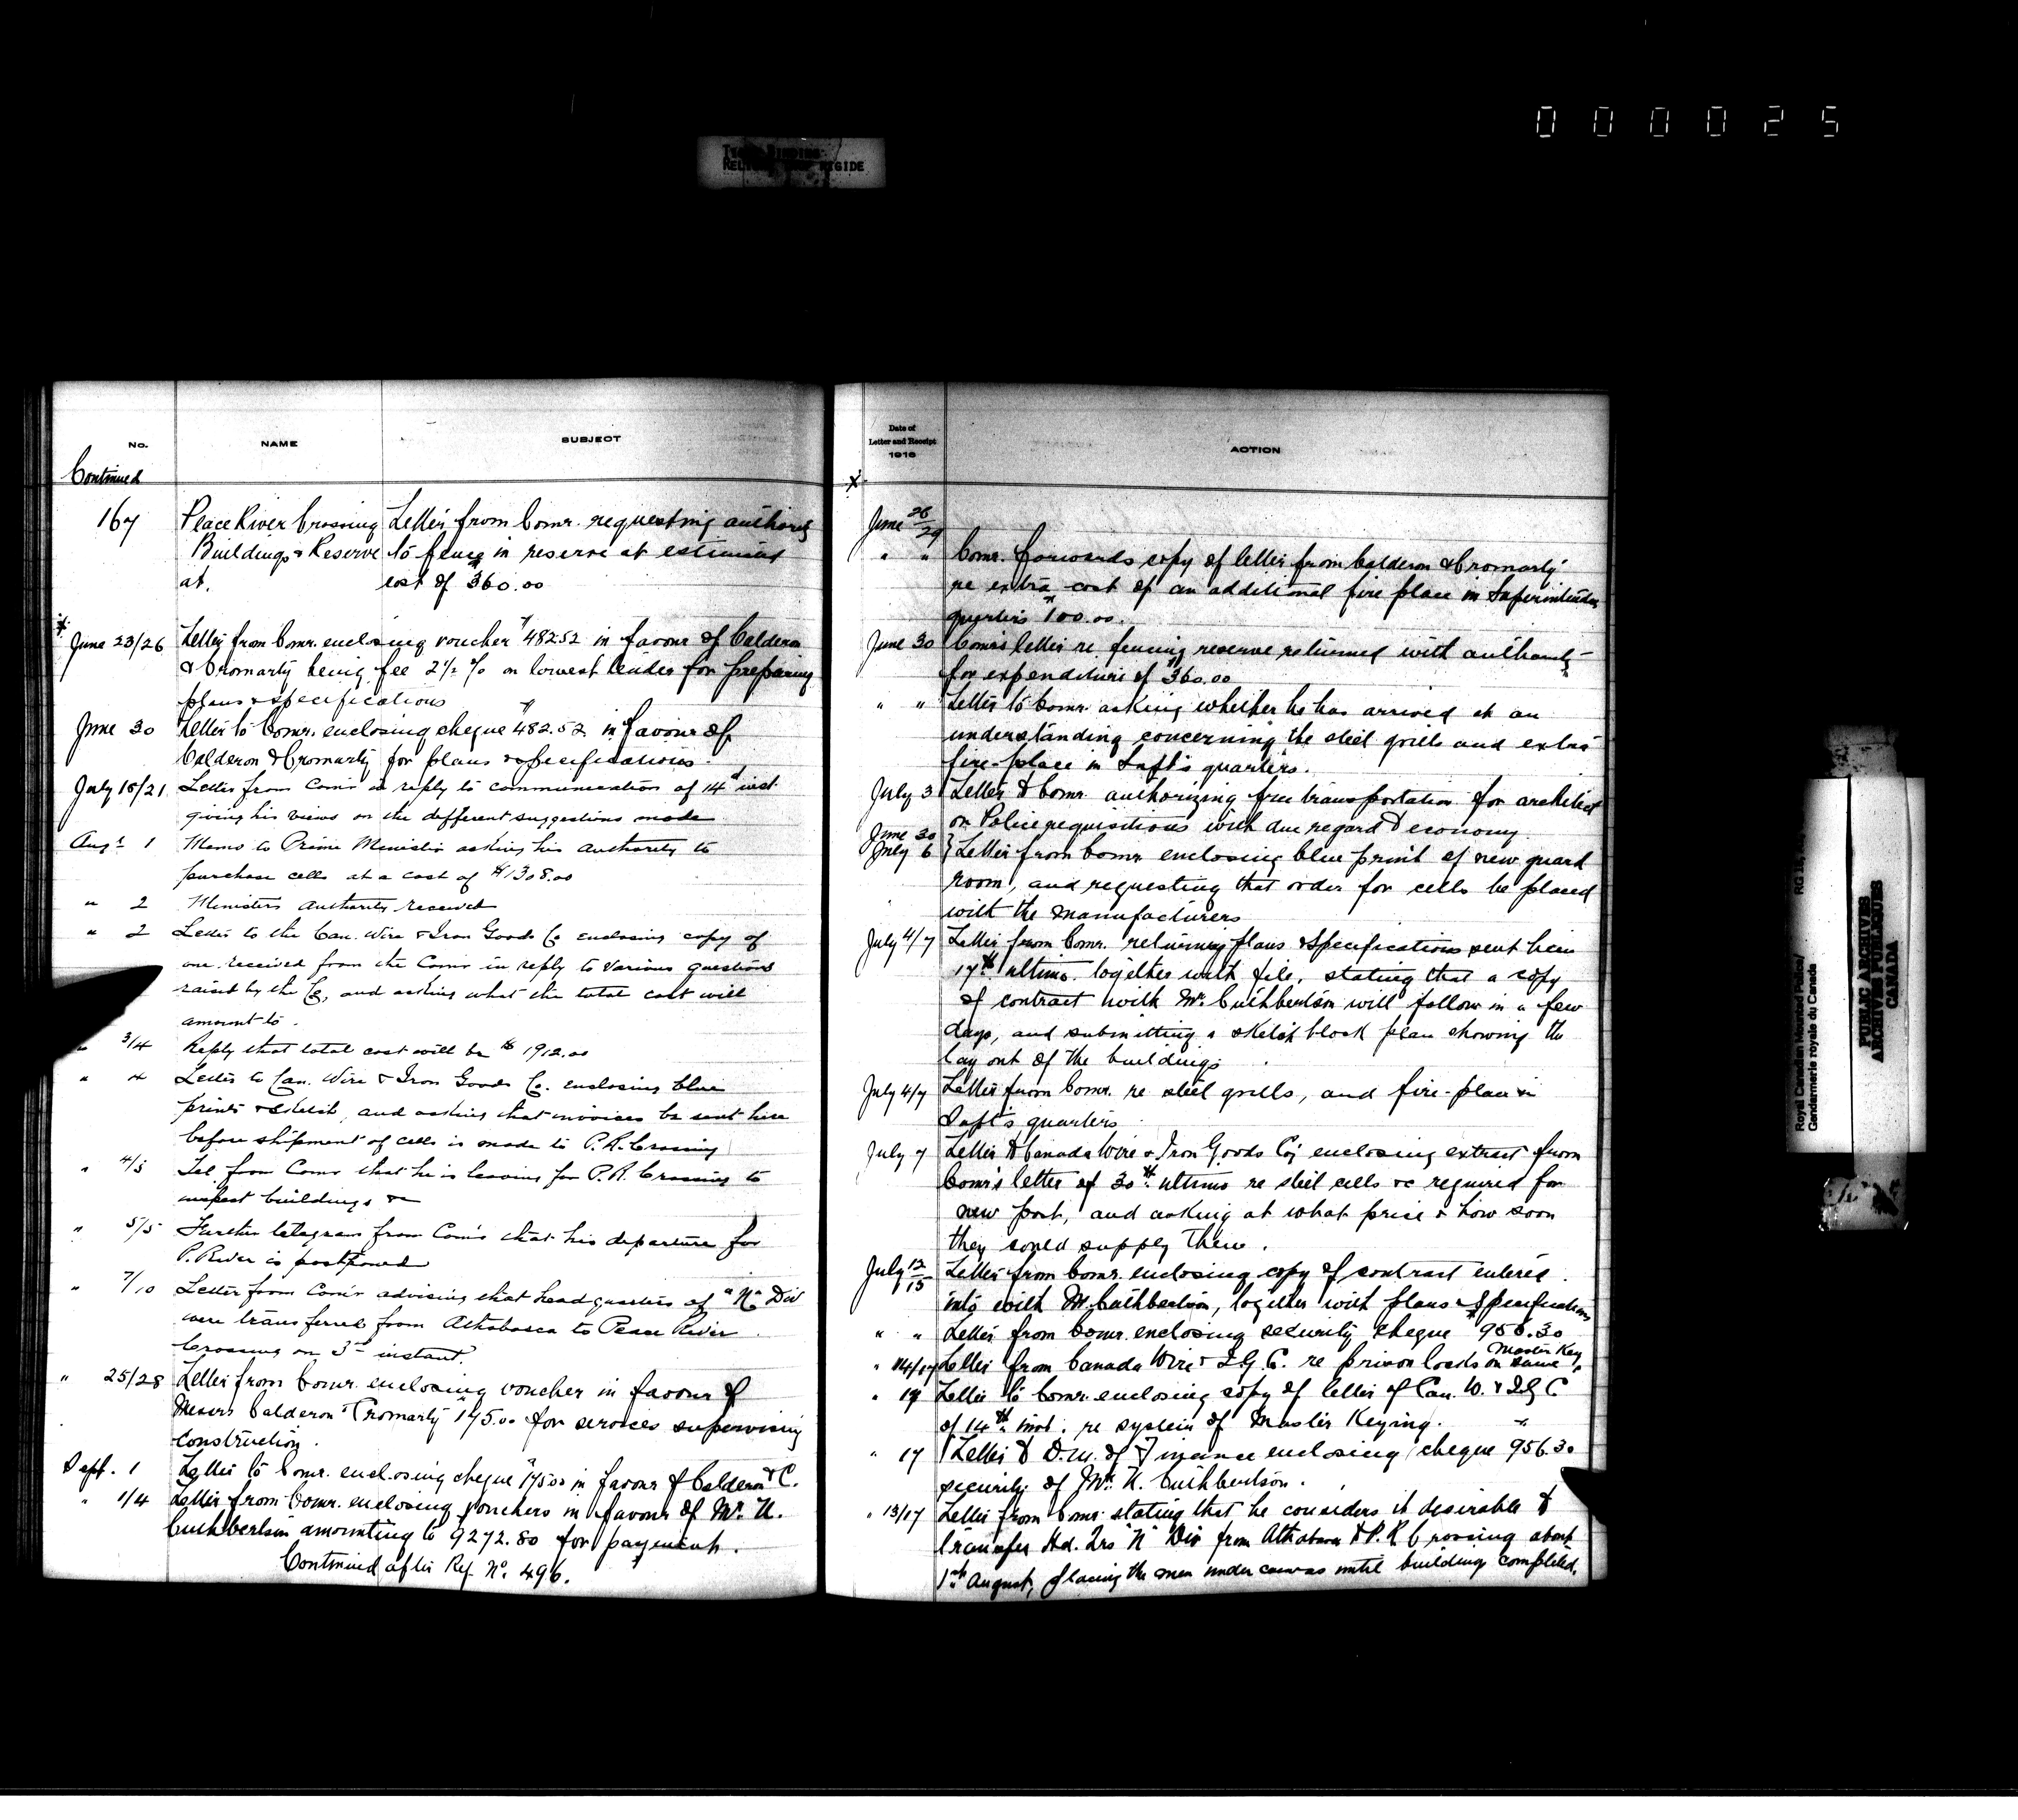 000025
RIGIDE
No.
NAME
SUBJECT
Continued
167 Peace River Crossing Letter from Comr. requesting authority
Buildings & Reserve to fence in reserve at estimated
at. cost of $360.00
June 23/26 Letter from Comr. enclosing voucher $482.52 in favour of Calderon
& Cromarty being fee 2½% on lowest tender for preparing
plans & specifications
June 30 Letter to Comr. enclosing cheque $482.52 in favour of
Calderon & Cromarty for plans & specifications.
July 18/21 Letter from Comr in reply to communication of 14th inst.
giving his views on the different suggestions made
Augt 1 Memo to Prime Minister asking his authority to
purchase cells at a cost of $1308.00
" 2 Ministers authority received
" 2 Letter to the Can. Wire & Iron Goods Co enclosing copy of
one received from the Comr in reply to various questions
raised by the Co, and asking what the total cost will
amount to.
" 3/4 Reply that total cost will be $1912.00
" 4 Letter to Can. Wire & Iron Goods Co. enclosing blue
prints & sketch, and asking that invoices be sent here
before shipment of cells is made to P.R. Crossing
" 4/5 Tel. from Comr that he is leaving for P.R. Crossing to
inspect buildings &c
" 5/5 Further telegram from Comr that his departure for
P. River is postponed
" 7/10 Letter from Comr advising that headquarters of "N" Div
were transferred from Athabasca to Peace River
Crossing on 3rd instant.
" 25/28 Letter from Comr. enclosing voucher in favour of
Messrs Calderon & Cromarty $175.00 for services supervising
construction.
Sept. 1 Letter to Comr. enclosing cheque $175.00 in favour of Calderon & C.
" 1/4 Letter from Comr. enclosing vouchers in favour of Mr. H.
Cuthbertson amounting to 9272.80 for payment.
Continued after Ref. No. 496.
Date of
Letter and Receipt
1916
ACTION
x
June 26/29
" " Comr. forwards copy of letter from Calderon & Cromarty
re extra cost of an additional fire place in Superintendents
quarters $100.00.
June 30 Comr's letter re fencing reserve returned with authority
for expenditure of $360.00
" " Letter to Comr. asking whether he has arrived at an
understanding concerning the steel grills and extra
fire-place in Supt's quarters.
July 3 Letter to Comr. authorizing free transportation for architect
on Police requisitions with due regard to economy.
June 30
July 6 } Letter from Comr enclosing blue print of new guard
room, and requesting that order for cells be placed
with the manufacturers
July 4/7 Letter from Comr. returning plans & specifications sent him
17th ultimo together with file, stating that a copy
of contract with Mr. Cuthbertson will follow in a few
days, and submitting a sketch block plan showing the
lay out of the buildings.
July 4/7 Letter from Comr. re steel grills, and fire-place in
Supt's quarters
July 7 Letter to Canada Wire & Iron Goods Co; enclosing extract from
Comr's letter of 30th ultimo re steel cells &c required for
new post, and asking at what price & how soon
they could supply them.
July 12/15 Letter from Comr. enclosing copy of contract entered
into with Mr. Cuthbertson, together with plans & specifications
" " Letter from Comr. enclosing security cheque $956.30
" 14/17 Letter from Canada Wire & I.G. C. re prison locks on same Master Key.
" 17 Letter to Comr. enclosing copy of letter of Can. W. & I.G C
of 14th inst. re system of Master Keying.
" 17 Letter to D.M. of Finance enclosing cheque 956.30
security of Mr. H. Cuthbertson.
" 13/17 Letter from Comr. stating that he considers it desirable to
transfer Hd. Qrs "N" Div from Athabasca to P.R Crossing about
1st August, placing the men under canvas until buildings completed.
Royal Canadian Mounted Police/
Gendarmerie royale du Canada
RG 18,
PUBLIC ARCHIVES
ARCHIVES PUBLIQUES
CANADA